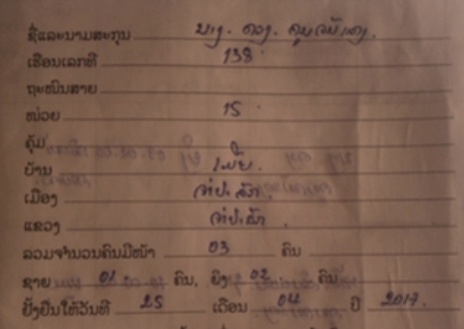 ຊື່ແລະນາມສະກຸນ ນາງ. ດວງ.
ເຮືອນເລກທີ 138
ຖະໜົນສາຍ
ໜ່ວຍ 15
ຄຸ້ມ
ບ້ານ
ເມືອງ ຈຳປາສັກ
ແຂວງ ຈຳປາສັກ
ລວມຈຳນວນຄົນມີໜ້າ 03 ຄົນ
ຊາຍ 01 ຄົນ, ຍິງ 02 ຄົນ
ຢັ້ງຢືນໃຫ້ວັນທີ 25 ເດືອນ 04 ປີ 2017.